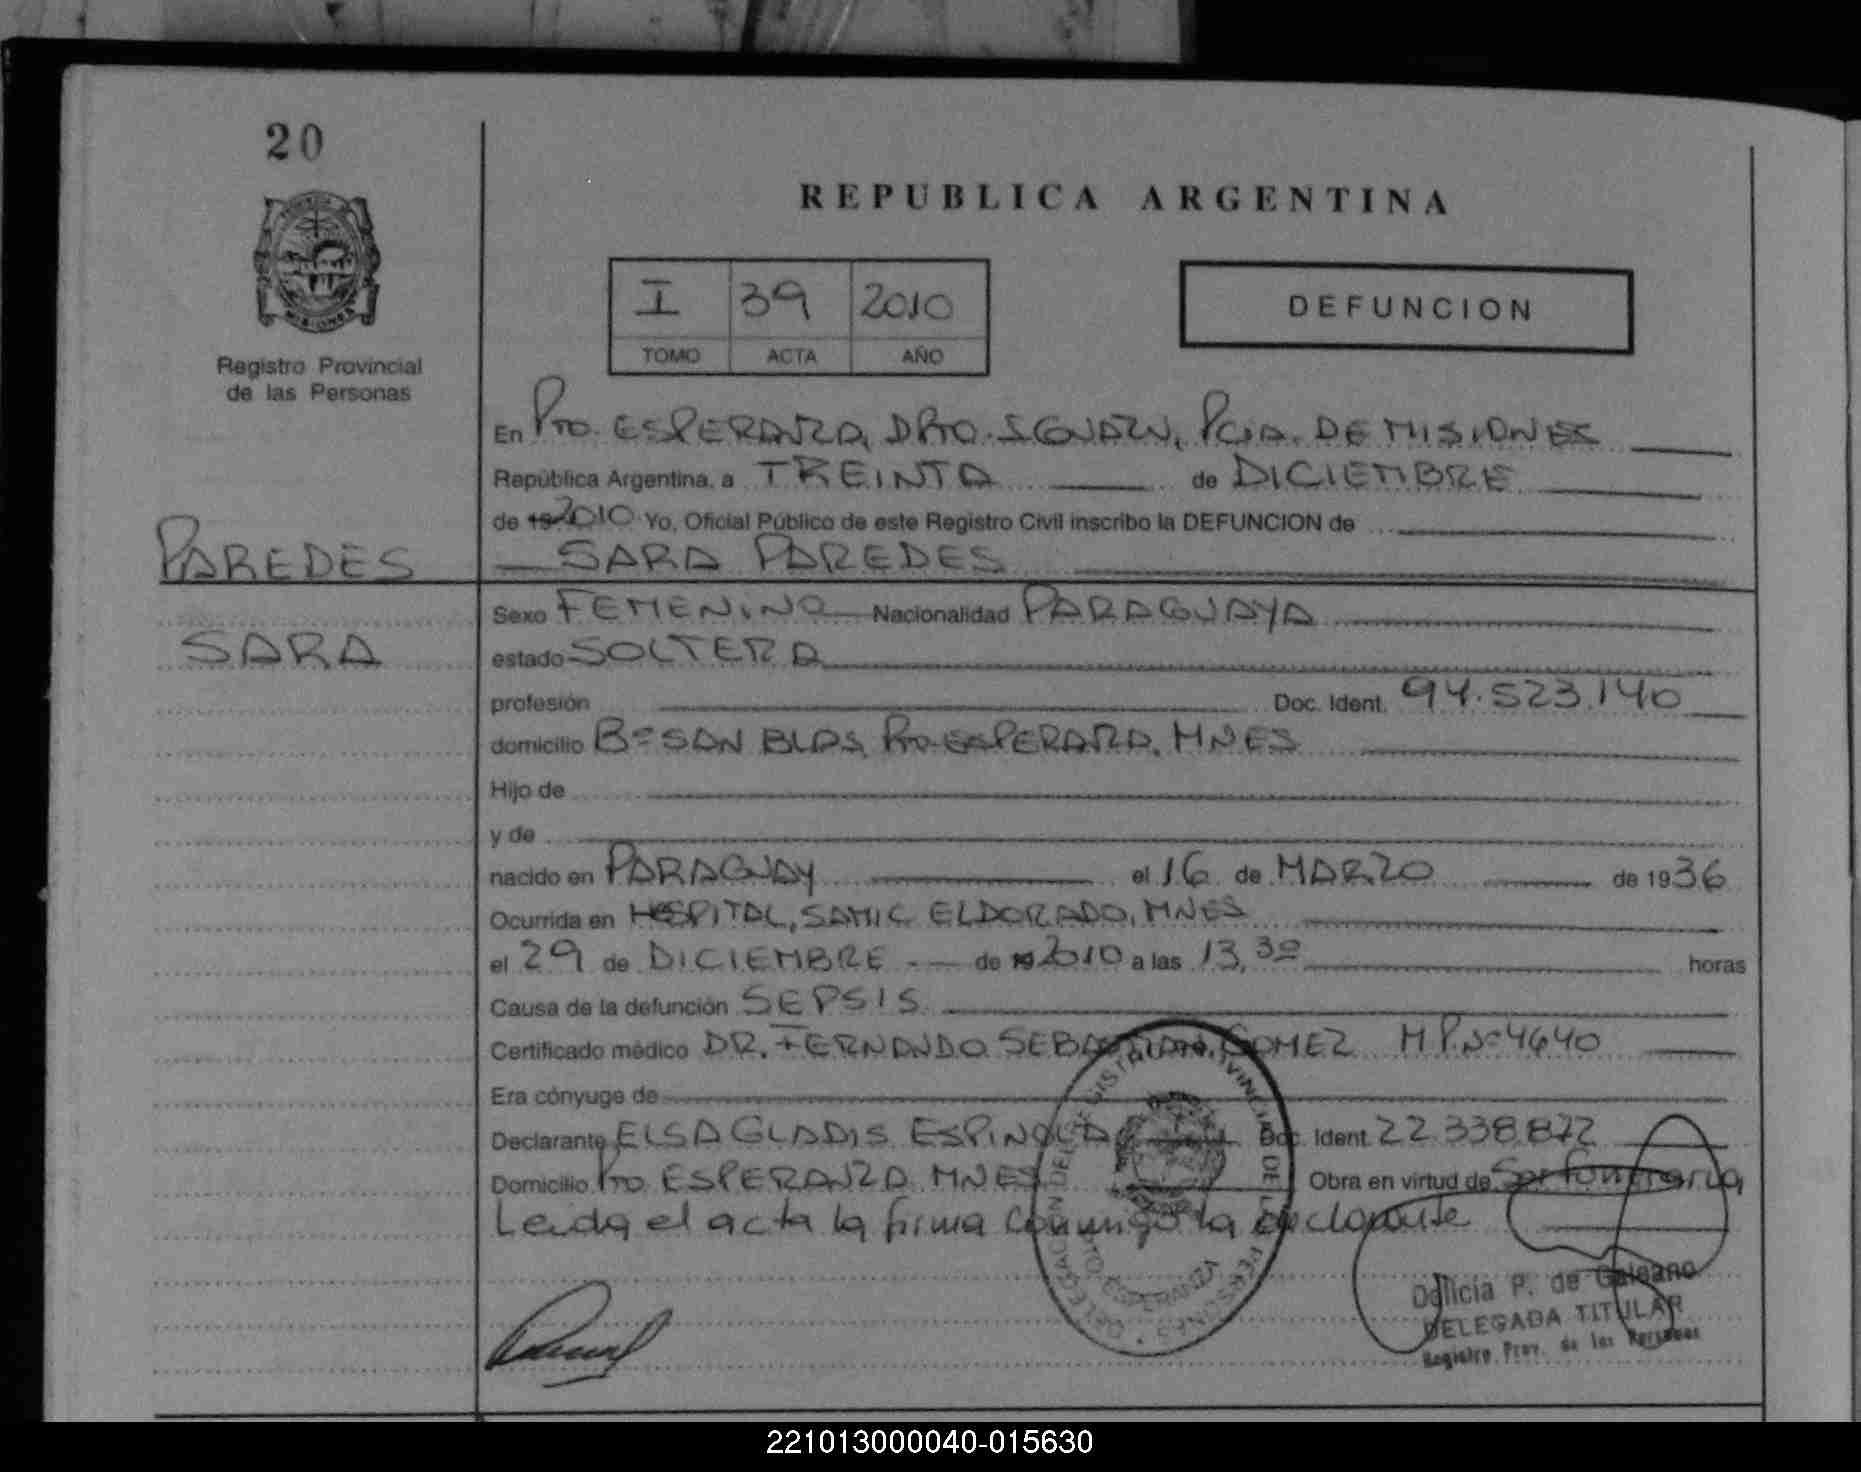 20
REPUBLICA ARGENTINA
I 39 2010
TOMO ACTA AÑO
DEFUNCION
MISIONES
Registro Provincial
de las Personas
En Pto. ESPERANZA, DPTO. IGUAZU, PCIA. DE MISIONES
República Argentina, a TREINTA de DICIEMBRE
de 19 2010 Yo, Oficial Público de este Registro Civil inscribo la DEFUNCION de
PAREDES
SARA PAREDES
SARA
Sexo FEMENINO Nacionalidad PARAGUAYA
estado SOLTERA
profesión Doc. Ident. 94.523.140
domicilio Bº SAN BLAS, Pto ESPERANZA, MNES
Hijo de
y de
nacido en PARAGUAY el 16 de MARZO de 1936
Ocurrida en HOSPITAL, SAMIC ELDORADO, MNES
el 29 de DICIEMBRE de 19 2010 a las 13,30 horas
Causa de la defunción SEPSIS
Certificado médico DR. FERNANDO SEBASTIAN GOMEZ M.P.Nº 4640
Era cónyuge de
Declarante ELSA GLADIS ESPINOLA Doc. Ident. 22.338.872
Domicilio Pto ESPERANZA MNES Obra en virtud de Ser
Leida el acta la firma conmigo la declarante
PTO. ESPERANZA
Delicia P. de Galeano
DELEGADA TITULAR
Registro Prov. de las Personas
221013000040-015630